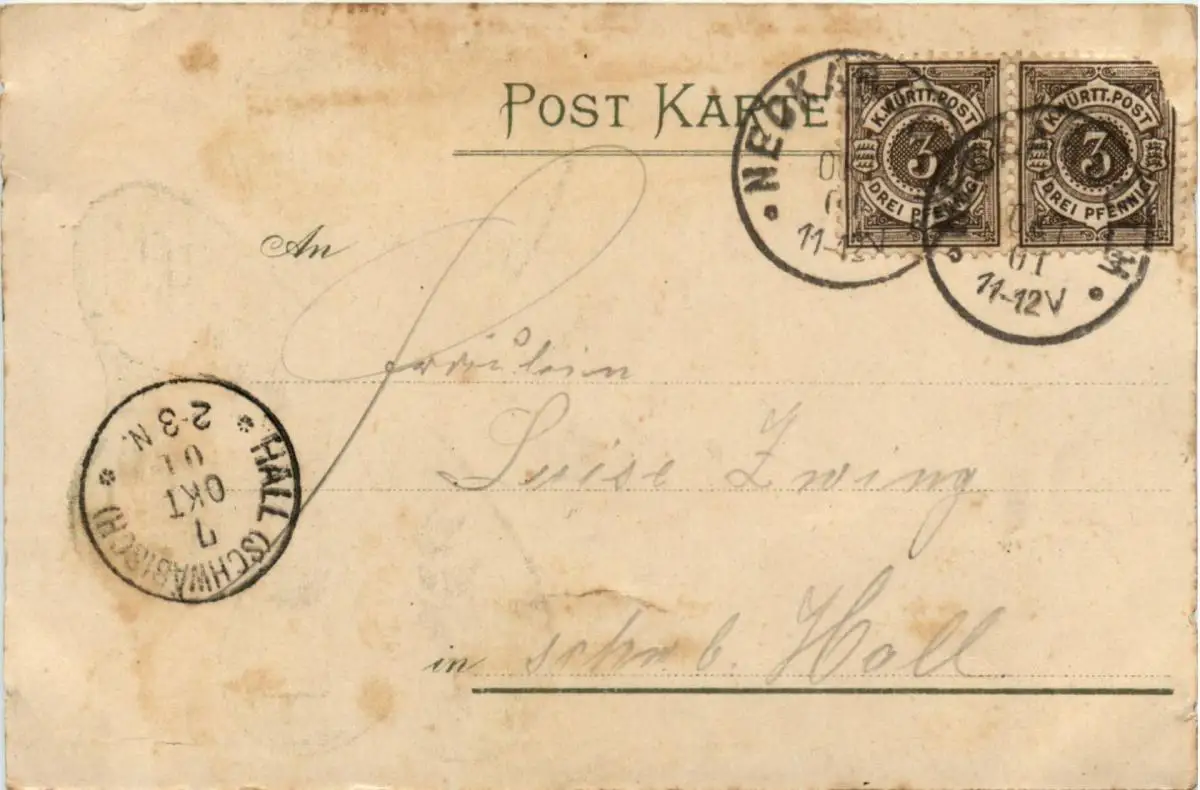 POST KARTE
K.WÜRTT.POST
3
DREI PFENNIG
K.WÜRTT.POST
3
DREI PFENNIG
11-12V
01
11-12V
An
Fräulein
Luise Zwing
in schwb. Hall
HALL (SCHWÄBISCH)
7
OKT
01
2-3 N.